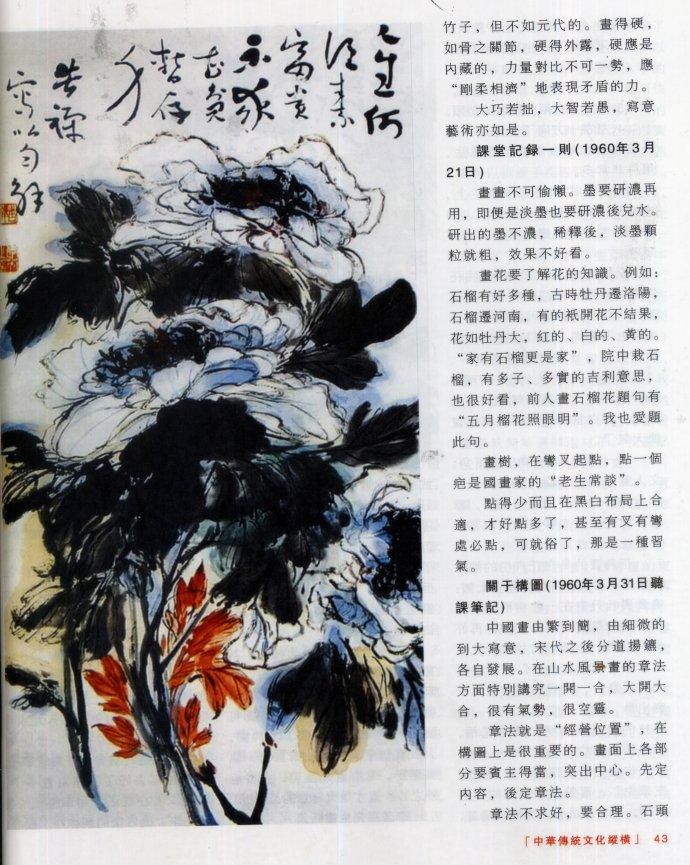 富貴
苦禪
竹子，但不如元代的。畫得硬，
如骨之關節，硬得外露，硬應是
内藏的，力量對比不可一勢，應
“剛柔相濟”地表現矛盾的力。
大巧若拙，大智若愚，寫意
藝術亦如是。
課堂記録一則(1960年3月
21日)
畫畫不可偷懶。墨要研濃再
用，即便是淡墨也要研濃後兑水。
研出的墨不濃，稀釋後，淡墨顆
粒就粗，效果不好看。
畫花要了解花的知識。例如：
石榴有好多種，古時牡丹遷洛陽，
石榴遷河南，有的衹開花不結果，
花如牡丹大，紅的、白的、黄的。
“家有石榴更是家”，院中栽石
榴，有多子、多實的吉利意思，
也很好看，前人畫石榴花題句有
“五月榴花照眼明”。我也愛題
此句。
畫樹，在彎叉起點，點一個
疤是國畫家的“老生常談”。
點得少而且在黑白布局上合
適，才好點多了，甚至有叉有彎
處必點，可就俗了，那是一種習
氣。
關于構圖(1960年3月31日聽
課筆記)
中國畫由繁到簡，由細微的
到大寫意，宋代之後分道揚鑣，
各自發展。在山水風景畫的章法
方面特别講究一開一合，大開大
合，很有氣勢，很空靈。
章法就是“經營位置”，在
構圖上是很重要的。畫面上各部
分要賓主得當，突出中心。先定
内容，後定章法。
章法不求好，要合理。石頭
「中華傳統文化縱橫」 43